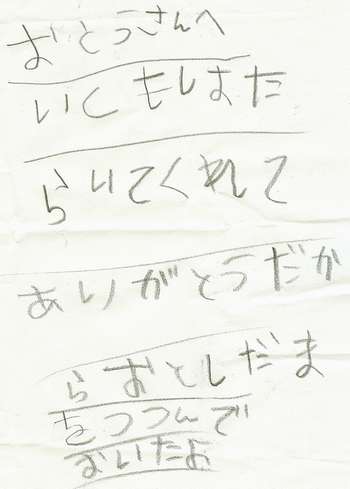 おとうさんへ
いつもはた
らいてくれて
ありがとうだか
らおとしだま
をつつんで
おいたよ